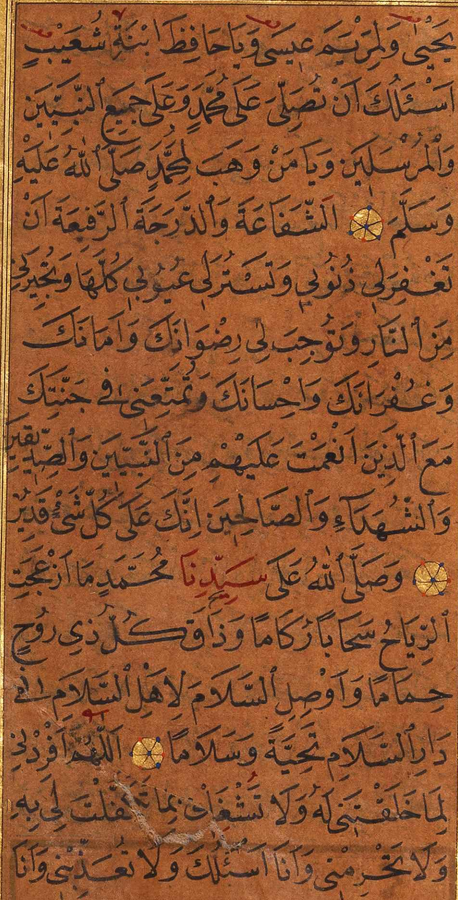 يَحْيَىٰ وَلِمَرْيَمَ عِيسَى وَيَا حَافِظَ ابْنَةِ شُعَيْبٍ
اَسْئَلُكَ اَنْ تُصَلِّيَ عَلَى مُحَمَّدٍ وَعَلَى جَمِيعِ النَّبِيِّينَ
وَالْمُرْسَلِينَ وَيَا مَنْ وَهَبَ لِمُحَمَّدٍ صَلَّى اللهُ عَلَيْهِ
وَسَلَّمَ الشَّفَاعَةَ وَالدَّرَجَةَ الرَّفِيعَةَ اَنْ
تَغْفِرَ لِي ذُنُوبِي وَتَسْتُرَ لِي عُيُوبِي كُلَّهَا وَتُجِيرَنِي
مِنَ النَّارِ وَتُوجِبَ لِي رِضْوَانَكَ وَاَمَانَكَ
وَغُفْرَانَكَ وَاِحْسَانَكَ وَتُمَتِّعَنِي فِي جَنَّتِكَ
مَعَ الَّذِينَ اَنْعَمْتَ عَلَيْهِمْ مِنَ النَّبِيِّينَ وَالصِّدِّيقِينَ
وَالشُّهَدَآءِ وَالصَّالِحِينَ اِنَّكَ عَلَى كُلِّ شَيْءٍ قَدِيرٌ
وَصَلَّى اللهُ عَلَى سَيِّدِنَا مُحَمَّدٍ مَا اَزْعَجَتِ
الرِّيَاحُ سَحَابًا رُكَامًا وَذَاقَ كُلُّ ذِي رُوحٍ
حِمَامًا وَاَوْصِلِ السَّلَامَ لِاَهْلِ السَّلَامِ فِي
دَارِ السَّلَامِ تَحِيَّةً وَسَلَامًا اَللّٰهُمَّ اَفْرِدْنِي
لِمَا خَلَقْتَنِي لَهُ وَلَا تَشْغَلْنِي بِمَا تَكَفَّلْتَ لِي بِهِ
وَلَا تَحْرِمْنِي وَاَنَا اَسْئَلُكَ وَلَا تُعَذِّبْنِي وَاَنَا